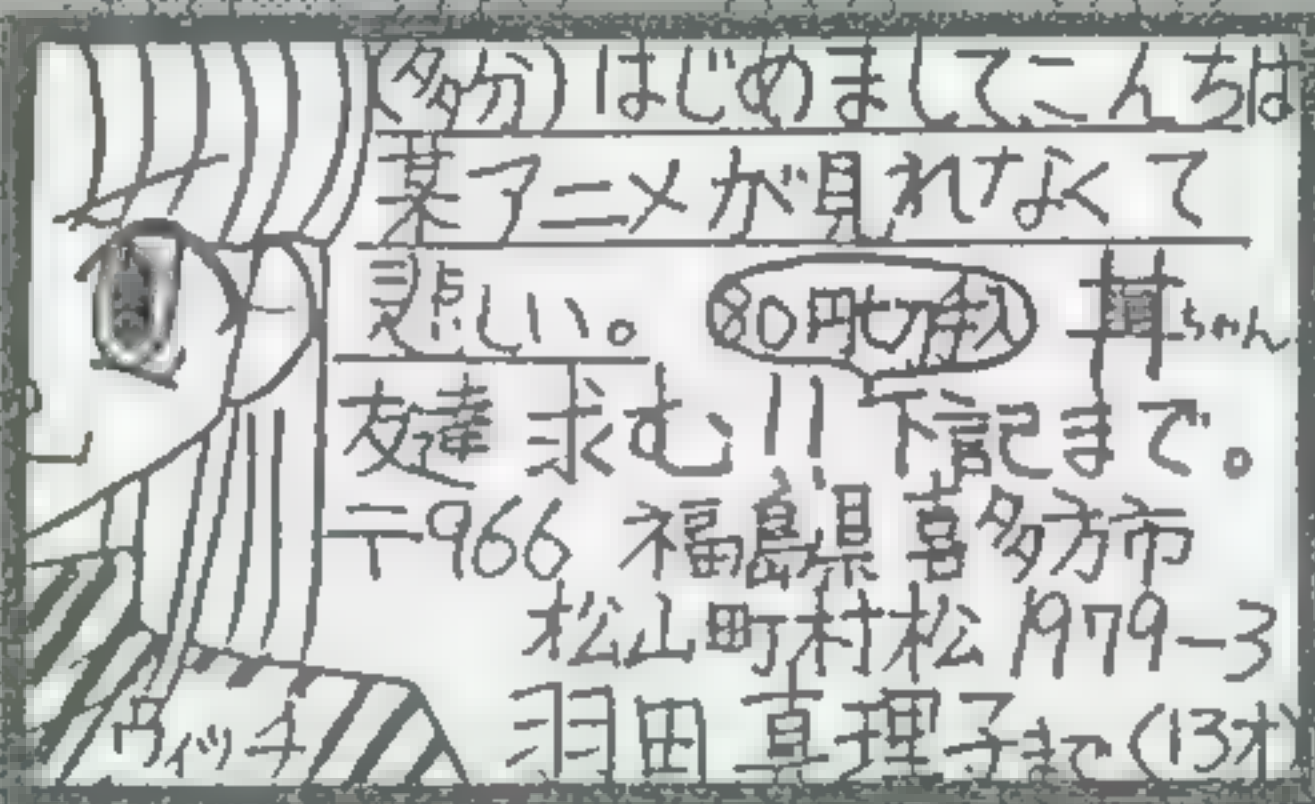 (多分)はじめましてこんちは
某アニメが見れなくて
悲しい。 80円切手入 茸ちゃん
友達求む!! 下記まで。
〒966 福島県喜多方市
松山町村松1979-3
羽田真理子まで(13才)
ヴィッチ